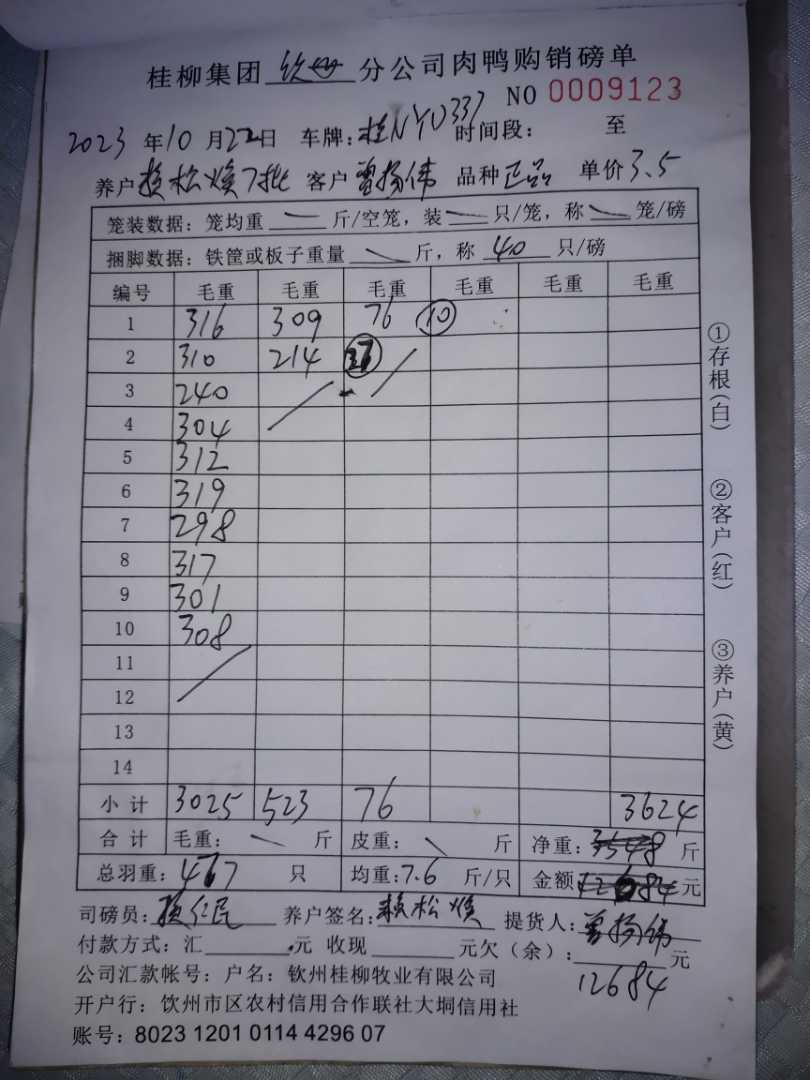 桂柳集团 钦州 分公司肉鸭购销磅单
NO 0009123
2023 年 10 月 22 日 车牌: 桂NYU337 时间段: 至
养户 赖松焕7批 客户 曾扬伟 品种 正品 单价 3.5
笼装数据: 笼均重 — 斤/空笼, 装 — 只/笼, 称 — 笼/磅
捆脚数据: 铁筐或板子重量 — 斤, 称 40 只/磅
编号 毛重 毛重 毛重 毛重 毛重 毛重
1 316 309 76 10
2 310 214
3 240
4 304
5 312
6 319
7 298
8 317
9 301
10 308
11
12
13
14
小计 3025 523 76 3624
合计 毛重: — 斤 皮重: — 斤 净重: 3548 斤
总羽重: 467 只 均重: 7.6 斤/只 金额 12684 元
司磅员: 赖仁民 养户签名: 赖松焕 提货人: 曾扬伟
付款方式: 汇 元 收现 元欠(余): 元
12684
公司汇款帐号: 户名: 钦州桂柳牧业有限公司
开户行: 钦州市区农村信用合作联社大垌信用社
账号: 8023 1201 0114 4296 07
①存根(白)
②客户(红)
③养户(黄)